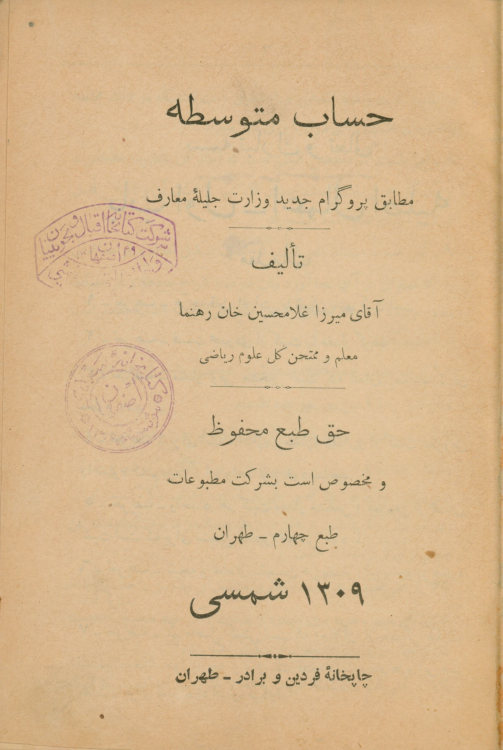 حساب متوسطه
مطابق پروگرام جدید وزارت جلیلهٔ معارف
تألیف
آقای میرزا غلامحسین خان رهنما
معلم و ممتحن کل علوم ریاضی
حق طبع محفوظ
و مخصوص است بشرکت مطبوعات
طبع چهارم ـ طهران
۱۳۰۹ شمسی
چاپخانهٔ فردین و برادر ـ طهران
شرکت کتابخانه اقبال و